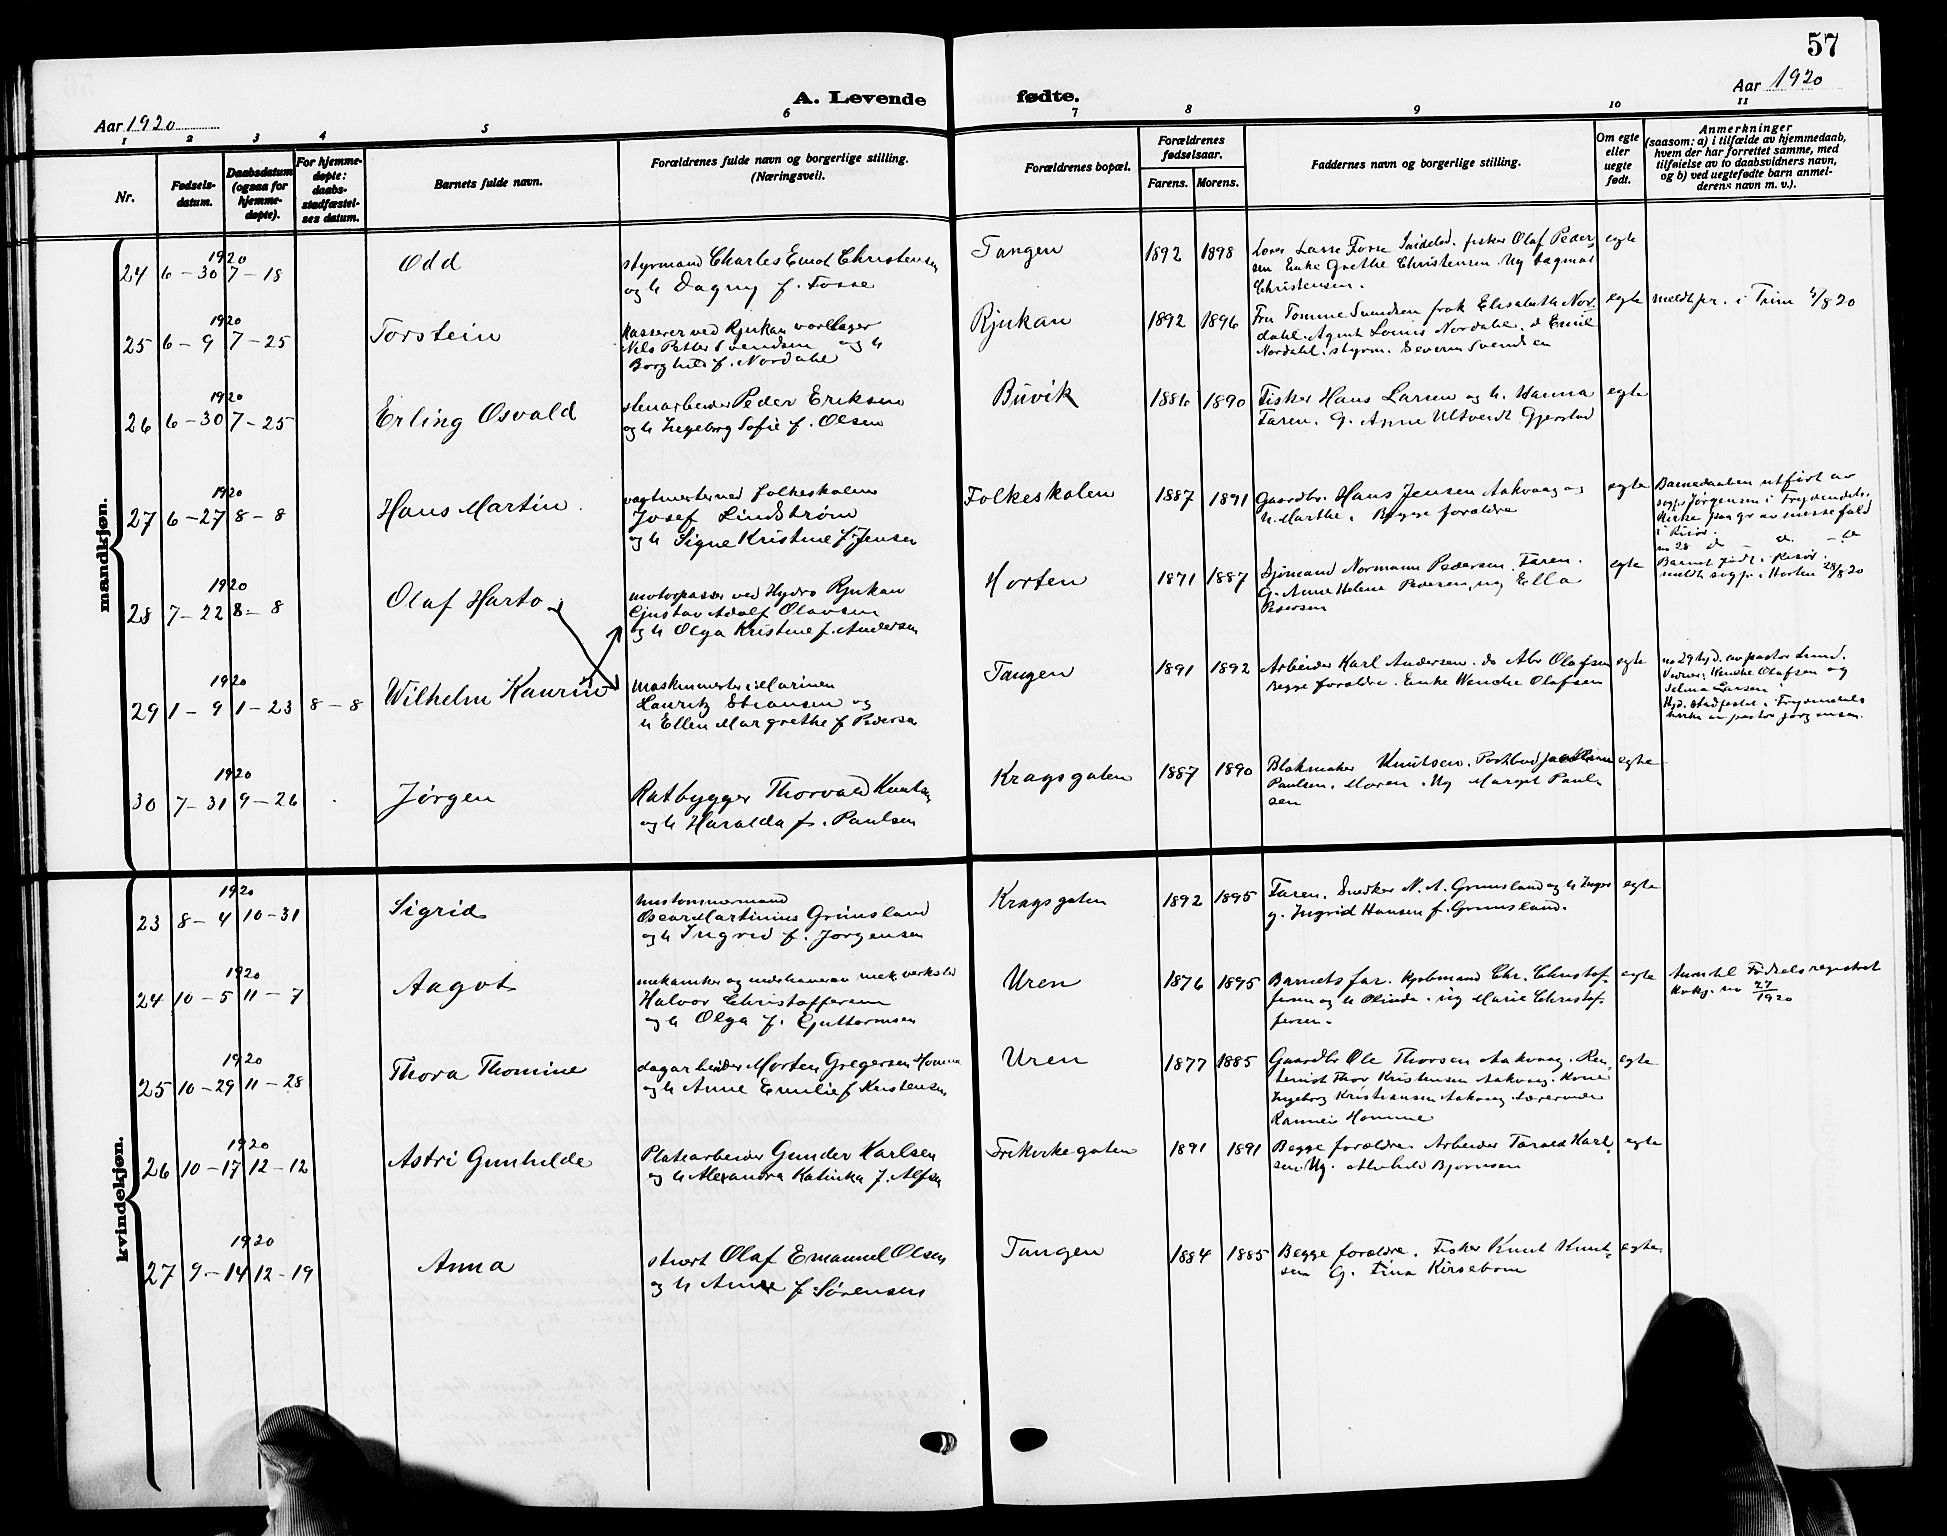 57
Aar 1920
A. Levende fødte.
Aar 1920
1 2 3 4 5 6 7 8 9 10 11
Nr.
Fødsels-
datum.
Daabsdatum
(ogsaa for
hjemme-
døpte).
For hjemme-
døpte:
daabs-
stadfæstel-
ses datum.
Barnets fulde navn.
Forældrenes fulde navn og borgerlige stilling.
(Næringsvei).
Forældrenes bopæl.
Forældrenes
fødselsaar.
Farens. Morens.
Faddernes navn og borgerlige stilling.
Om egte
eller
uegte
født.
Anmerkninger
(saasom: a) i tilfælde av hjemmedaab,
hvem der har forrettet samme, med
tilføielse av to daabsvidners navn,
og b) ved uegtefødte barn anmel-
derens navn m. v.).
mandkjøn.
1920
24 6-30 7-18 Odd
styrmand Charles Emot Christensen
og h Dagny f. Tosse
Tangen 1892 1898
fisker Olaf Peder-
sen Enke Grethe Christensen. Ug Dagmar
Christensen.
egte
1920
25 6-9 7-25 Torstein
kasserer ved Rjukan varelager
Nils Petter Svendsen og h
Borghild f. Nordahl
Rjukan 1892 1896
Fru Tomme Svendsen frøk Elisabeth Nor-
dahl. Agent Louis Nordahl. d Emil
Nordahl. styrm. Severin Svendsen
egte
meldt pr. i Tinn 4/8 20
1920
26 6-30 7-25 Erling Osvald
stenarbeider Peder Eriksen
og h Ingeborg Sofie f. Olsen
Buvik 1886 1890
Fisker Hans Larsen og h. Hanna
Faren. G. Anne Ultveidt Gjerstad
egte
1920
27 6-27 8-8 Hans Martin.
vagtmester ved folkeskolen
Josef Lindstrøm
og h Signe Kristine f. Jensen
Folkeskolen 1887 1891
Gaardbr. Hans Jensen Aakvaag og
h. Marthe. Begge forældre
egte
Barnedaaben utført av
sogpr Jørgensen i Frydendals
kirke paa gr av messefald
i Risør.
no 28 d d. d
1920
28 7-22 8-8 Olaf Harto
motorpasser ved Hydro Rjukan
Gustav Adolf Olavsen
og h Olga Kristine f. Andersen
Horten 1871 1887
Sjømand Normann Pedersen. Faren.
G. Anne Helene Pedersen, ug Ella
Pedersen
egte
Barnet født i Risør.
meldt sogpr. i Horten 28/8 20
1920
29 1-9 1-23 8-8 Wilhelm Kaurin
Maskinmester i Marinen
Lauritz Stiansen og
h Ellen Margrethe f Pedersen
Tangen 1891 1892
Arbeider Karl Andersen. do Abr Olafsen
Begge forældre. Enke Wenche Olafsen
egte
no 29 hjd. av pastor Lund.
Vidner: Wenche Olafsen og
Selma Larsen
Hjd. stadfestet i Frydendals
kirke av pastor Jørgensen.
1920
30 7-31 9-26 Jørgen
Ratbygger Thorvald Knutsen
og h Haralda f. Paulsen
Kragsgaten 1887 1890
Blokmaker Knutsen. Postbud
Paulsen. Moren. Ug Margit Paul-
sen
egte
kvindekjøn.
1920
23 8-4 10-31 Sigrid
hustømmermand
Oscar Martinius Grimsland
og h Ingrid f. Jørgensen
Kragsgaten 1892 1895
Faren. Snedker N. A. Grimsland og h Inger
g. Ingrid Hansen f. Grimsland.
egte
1920
24 10-5 11-7 Aagot
mekaniker og medeier av mek. verksted
Halvor Christoffersen
og h Olga f. Guttormsen
Uren 1876 1895
Barnets far. Kjøbmand Chr. Christof-
fersen og h Olinde. ug Marie Christof-
fersen.
egte
Anm til Fødselsregistret
Kvkj. no 27/1920
1920
25 10-29 11-28 Thora Thomine
dagarbeider Morten Gregersen Homme
og h Anne Emilie f Kristensen
Uren 1877 1885
Gaardbr Ole Thorsen Aakvaag. Ren-
tenist Thor Kristensen Aakvaag. Kone
Ingeborg Kristiansen Aakvaag Lærerinde
Rannei Homme
egte
1920
26 10-17 12-12 Astri Gunhilde
Platearbeider Gunder Karlsen
og h Alexandra Katinka f. Alfsen
Frikirkegaten 1891 1891
Begge forældre. Arbeider Tarald Karl-
sen. Ug. Alvhild Bjørnsen
egte
1920
27 9-14 12-19 Anna
stuert Olaf Emanuel Olsen
og h Anne f. Sørensen
Tangen 1884 1885
Begge forældre. Fisker Knut Knut-
sen G. Tina Kirsebom
egte